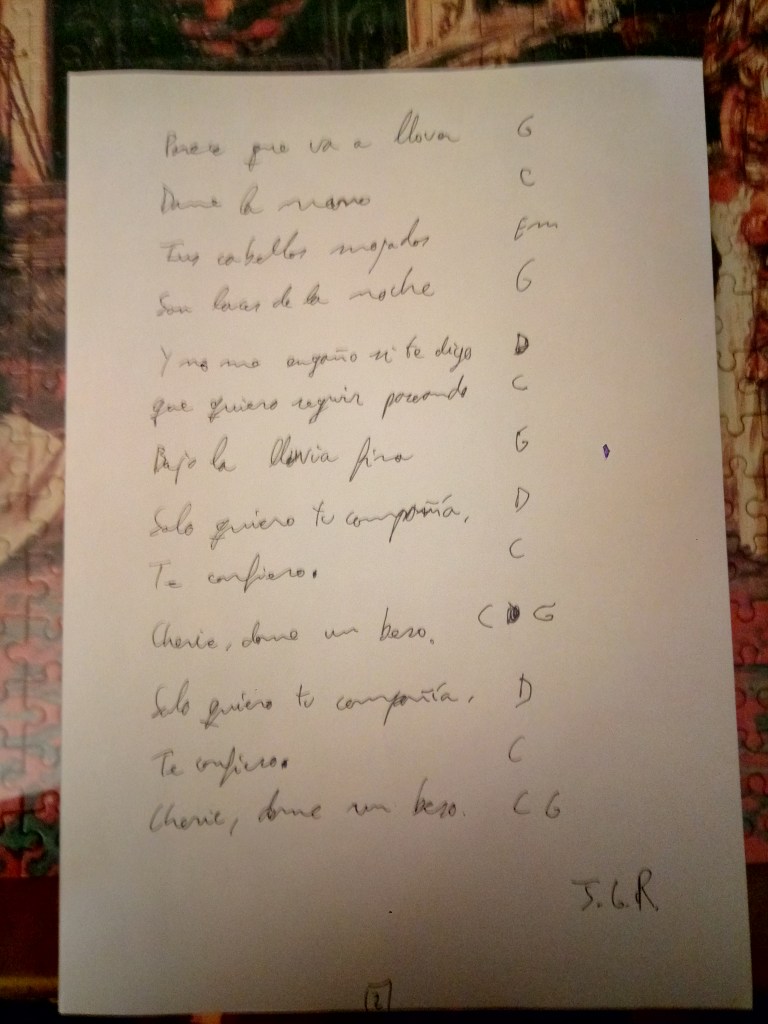 Parece que va a llover G
Dame la mano C
Tus cabellos mojados Em
Son luces de la noche G
Y no me engaño si te digo D
que quiero seguir paseando C
Bajo la lluvia fina G
Solo quiero tu compañía, D
Te confieso. C
Cherie, dame un beso. C G
Solo quiero tu compañía, D
Te confieso. C
Cherie, dame un beso. C G
J.G.R.
2